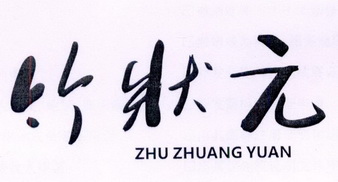 竹狀元
ZHU ZHUANG YUAN